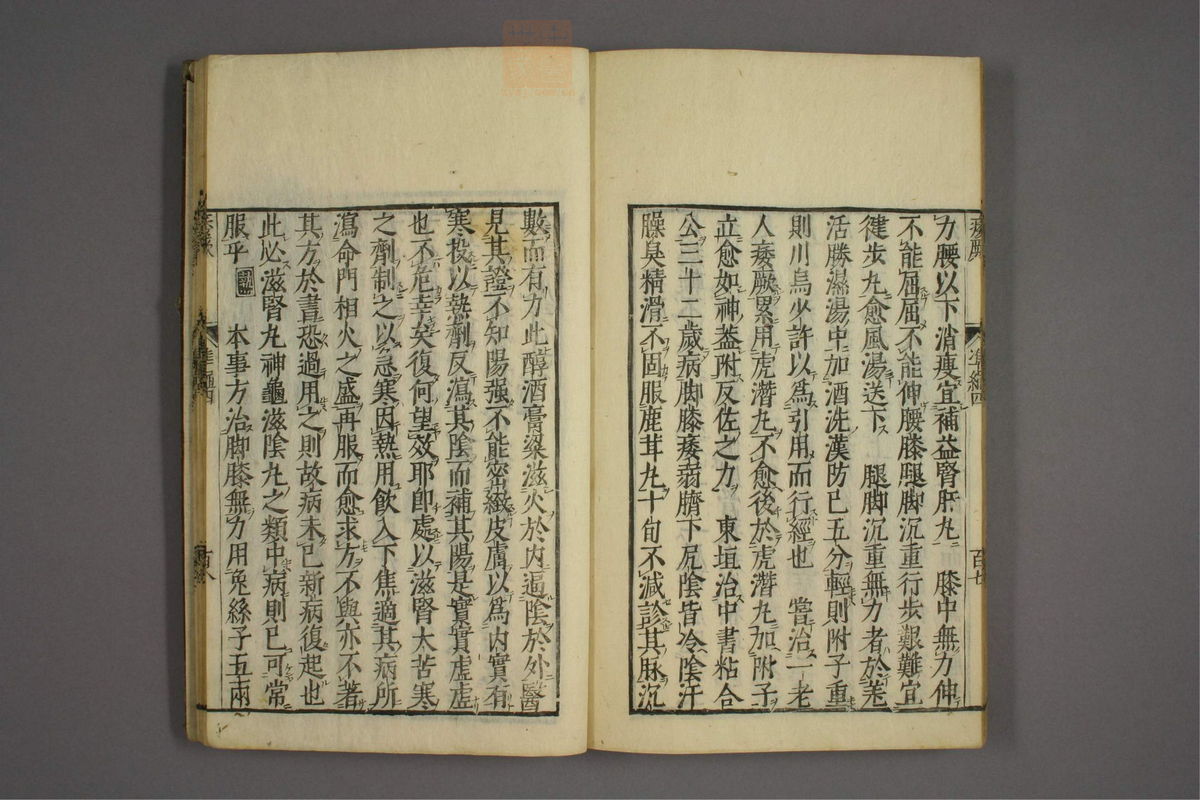 力腰以下消瘦宜補益腎肝丸　膝中無力伸
不能屈屈不能伸腰膝腿脚沉重行步艱難宜
健步丸愈風湯送下　腿脚沉重無力者於羌
活勝濕湯中加酒洗漢防已五分輕則附子重
則川烏少許以爲引用而行經也　嘗治一老
人痿厥累用虎潛丸不愈後於虎潛丸加附子
立愈如神葢附反佐之力　東垣治中書粘合
公三十二歲病脚膝痿弱臍下尻陰皆冷陰汗
臊臭精滑不固服鹿茸丸十旬不減診其脉沉
數而有力此醇酒膏粱滋火於内逼陰於外醫
見其證不知陽强不能密緻皮膚以爲内實有
寒投以熱劑反瀉其陰而補其陽是實實虛虛
也不危幸矣復何望效耶卽處以滋腎大苦寒
之劑制之以急寒因熱用飮入下焦適其病所
瀉命門相火之盛再服而愈求方不與亦不著
其方於書恐過用之則故病未已新病復起也
此必滋腎丸神龜滋陰丸之類中病則已可常
服乎　本事方治脚膝無力用兔絲子五兩